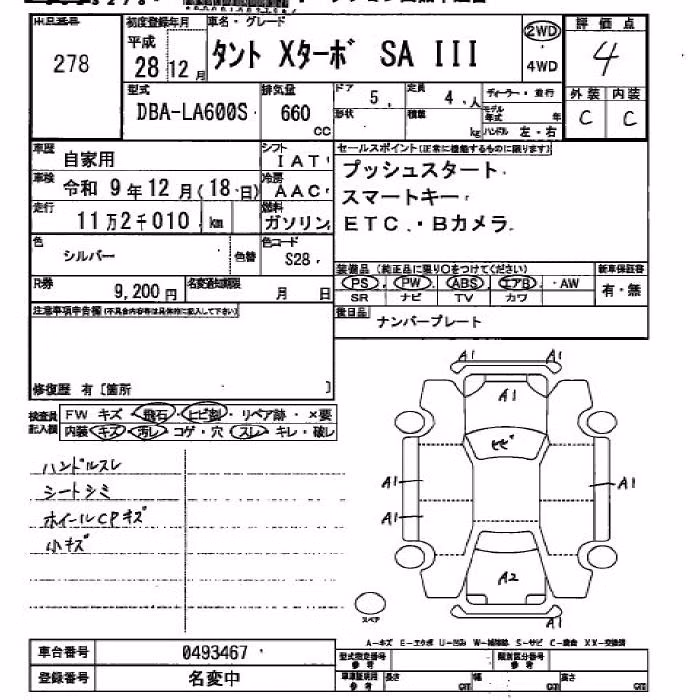 出品番号 初度登録年月 車名・グレード 2WD 評価点
278 平成 28 12月 タント Xターボ SA III ・ 4WD 4
型式 排気量 ドア 定員 ディーラー・並行 外装 内装
DBA-LA600S 660 cc 5 4 人 モデル年式 年 C C
形状 積載 kg ハンドル 左・右
車歴 自家用 シフト IAT セールスポイント(正常に機能するものに限ります)
車検 令和 9年12月(18日) 冷房 AAC プッシュスタート
走行 11万2千010 km 燃料 ガソリン スマートキー
ETC・Bカメラ
色 シルバー 色替 色コード S28
装備品(純正品に限り○をつけてください) 新車保証書
R券 9,200円 名変通知期限 月 日 PS・PW・ABS・エアB・AW 有・無
SR ナビ TV カワ
注意事項申告欄(不具合内容等は具体的に記入して下さい) 後日品 ナンバープレート
修復歴 有[箇所 ]
検査員記入欄 FW キズ・飛石・ヒビ割・リペア跡・×要
内装・キズ・汚レ・コゲ・穴・スレ・キレ・破レ
A1 A1
A1
ヒビ
A1 A1
A1
A2
ハンドルスレ
シートシミ
ホイールCPキズ
小キズ
スペア
A-キズ E-エクボ U-凹み W-補修跡 S-サビ C-腐食 XX-交換済
車台番号 0493467 型式指定番号 参考 類別区分番号 参考
登録番号 名変中 車庫証明用 参考 長さ cm 幅 cm 高さ cm